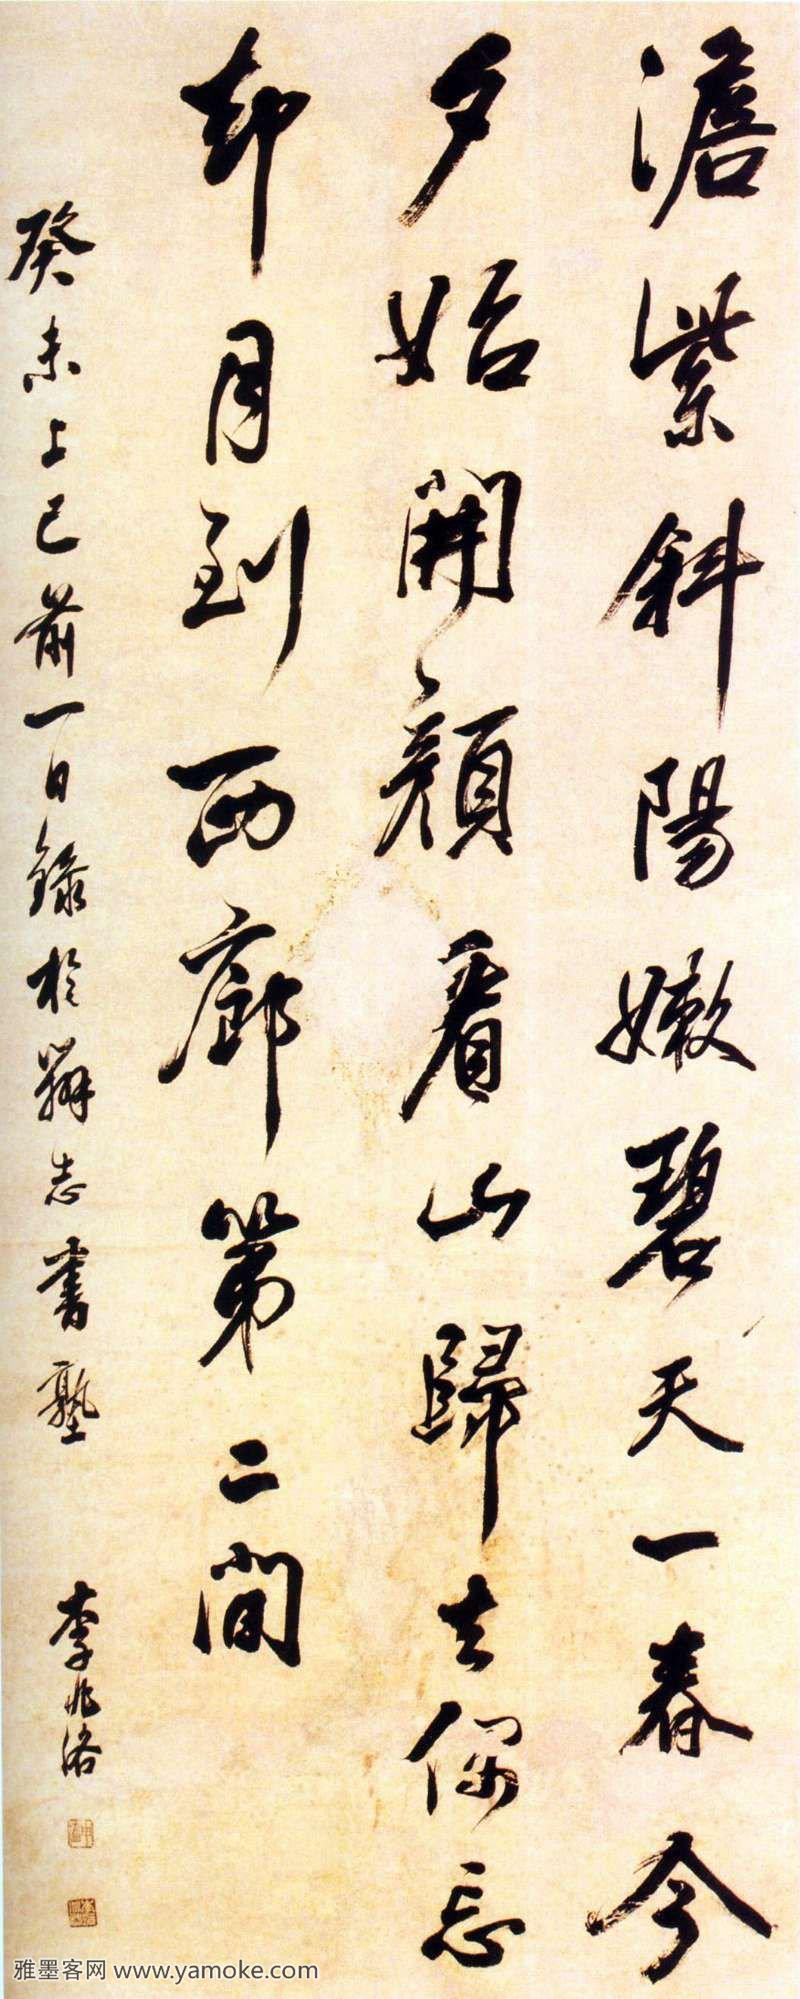 澹紫斜陽嫩碧天一春今
夕始開顏看山歸去偶忘
却月到西廊第二間
癸未上巳前一日錄於辨志書塾
李兆洛
雅墨客网 www.yamoke.com